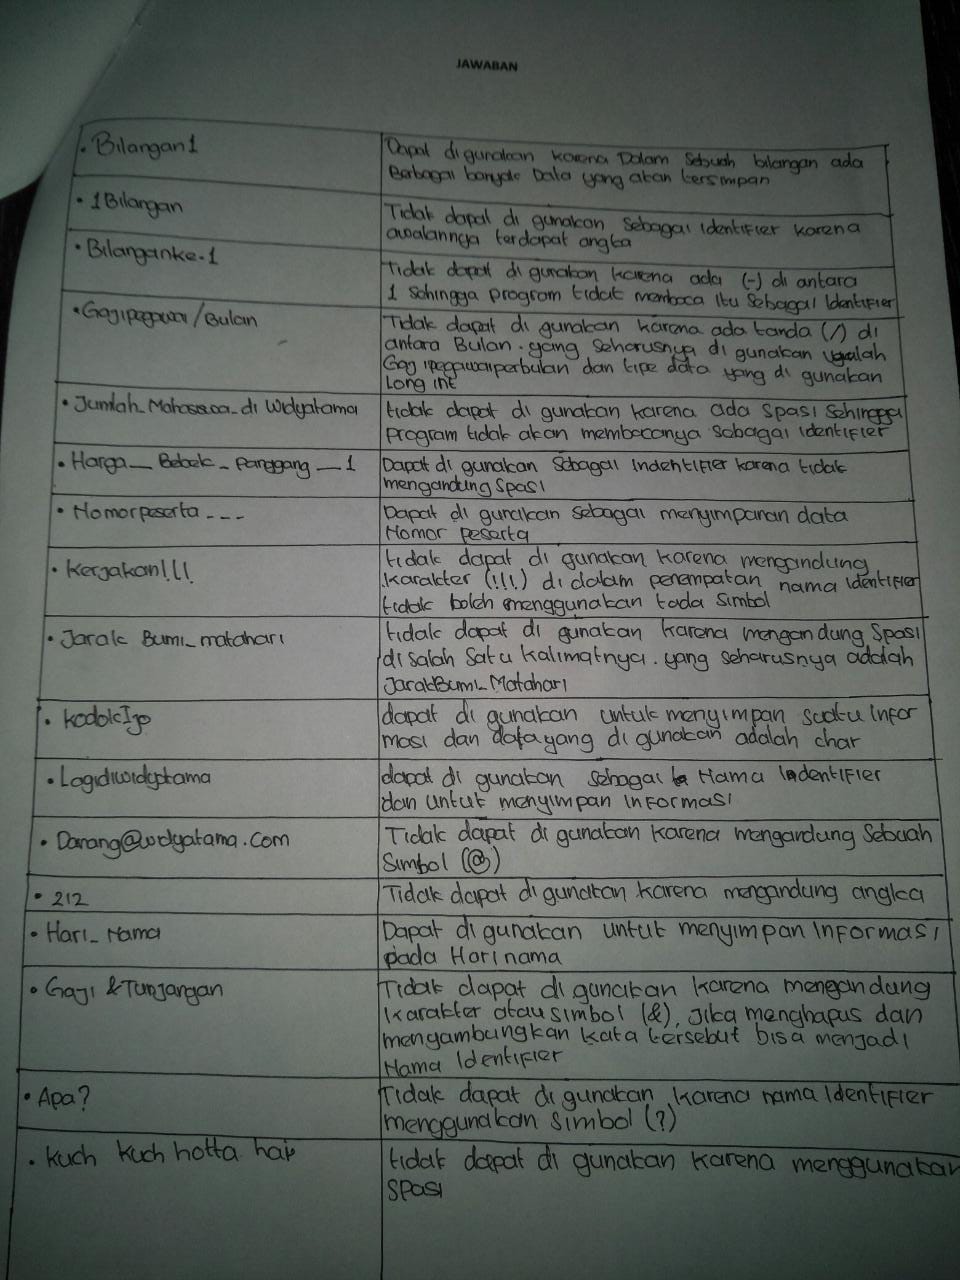 JAWABAN
• Bilangan1
Dapat di gunakan karena Dalam Sebuah bilangan ada
Berbagai banyak Data yang akan tersimpan
• 1Bilangan
Tidak dapat di gunakan Sebagai Identifier karena
awalannya terdapat angka
• Bilanganke-1
Tidak dapat di gunakan karena ada (-) di antara
1 Sehingga program tidak membaca itu Sebagai Identifier
• Gajipegawai/Bulan
Tidak dapat di gunakan karena ada tanda (/) di
antara Bulan. yang Seharusnya di gunakan yaalah
Gajipegawaiperbulan dan tipe data yang di gunakan
Long int
• Jumlah_Mahasiswa_di Widyatama
tidak dapat di gunakan karena ada Spasi Sehingga
program tidak akan membacanya Sebagai identifier
• Harga__Bebek_panggang__1
Dapat di gunakan Sebagai Indentifier karena tidak
mengandung Spasi
• Nomorpeserta _ _ _
Dapat di gunakan sebagai menyimpanan data
Nomor peserta
• Kerjakan!!!
tidak dapat di gunakan karena mengandung
karakter (!!!) di dalam penempatan nama Identifier
tidak boleh menggunakan tada Simbol
• Jarak Bumi_matahari
tidak dapat di gunakan karena mengandung Spasi
di Salah Satu kalimatnya. yang seharusnya adalah
JarakBumi_Matahari
• kodokIjo
dapat di gunakan untuk menyimpan suatu Infor
masi dan data yang di gunakan adalah char
• Logidiwidyatama
dapat di gunakan sebagai Nama Identifier
dan untuk menyimpan Informasi
• Danang@widyatama.com
Tidak dapat di gunakan karena mengandung Sebuah
Simbol (@)
• 212
Tidak dapat di gunakan karena mengandung angka
• Hari_Nama
Dapat di gunakan untuk menyimpan Informasi
pada Hari nama
• Gaji &Tunjangan
Tidak dapat di gunakan karena mengandung
karakter atau simbol (&), Jika menghapus dan
mengambungkan kata tersebut bisa menjadi
Nama Identifier
• Apa?
Tidak dapat di gunakan karena nama Identifier
menggunakan Simbol (?)
• kuch kuch hotta hai
tidak dapat di gunakan karena menggunakan
Spasi